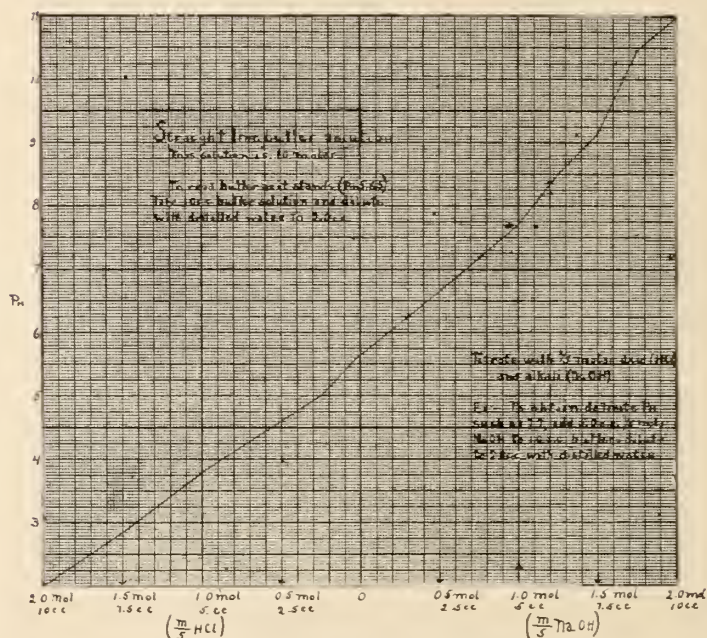 11
10
9
8
7
6
5
4
3
PH
Straight line buffer solution
This solution is 10 molar
To read buffer as it stands (PH 5.65)
Take 10 cc buffer solution and dilute
with distilled water to 20 cc
Titrate with m/5 molar acid (HCl)
and alkali (NaOH)
Ex - To obtain definite PH
such as 7.7 add 5.0 c.c.
NaOH to 10 c.c. buffer, dilute
to 20cc with distilled water
2.0 mol 1.5 mol 1.0 mol 0.5 mol 0 0.5 mol 1.0 mol 1.5 mol 2.0 mol
10cc 7.5 cc 5. cc 2.5 cc 2.5 cc 5 cc 7.5 cc 10 cc
(m/5 HCl) (m/5 NaOH)